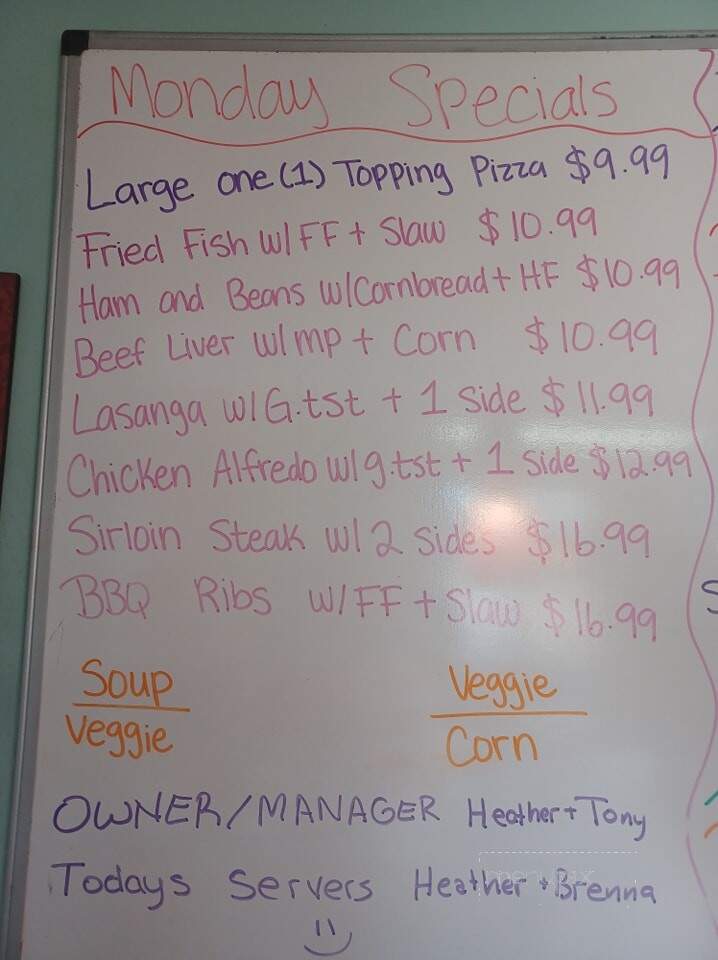 Monday Specials
Large one (1) Topping Pizza $9.99
Fried Fish w/ FF + Slaw $10.99
Ham and Beans w/Cornbread + HF $10.99
Beef Liver w/ mp + Corn $10.99
Lasanga w/ G.tst + 1 Side $11.99
Chicken Alfredo w/ g.tst + 1 Side $12.99
Sirloin Steak w/ 2 Sides $16.99
BBQ Ribs w/ FF + Slaw $16.99
Soup
Veggie
Veggie
Corn
OWNER/MANAGER Heather + Tony
Todays Servers Heather + Brenna